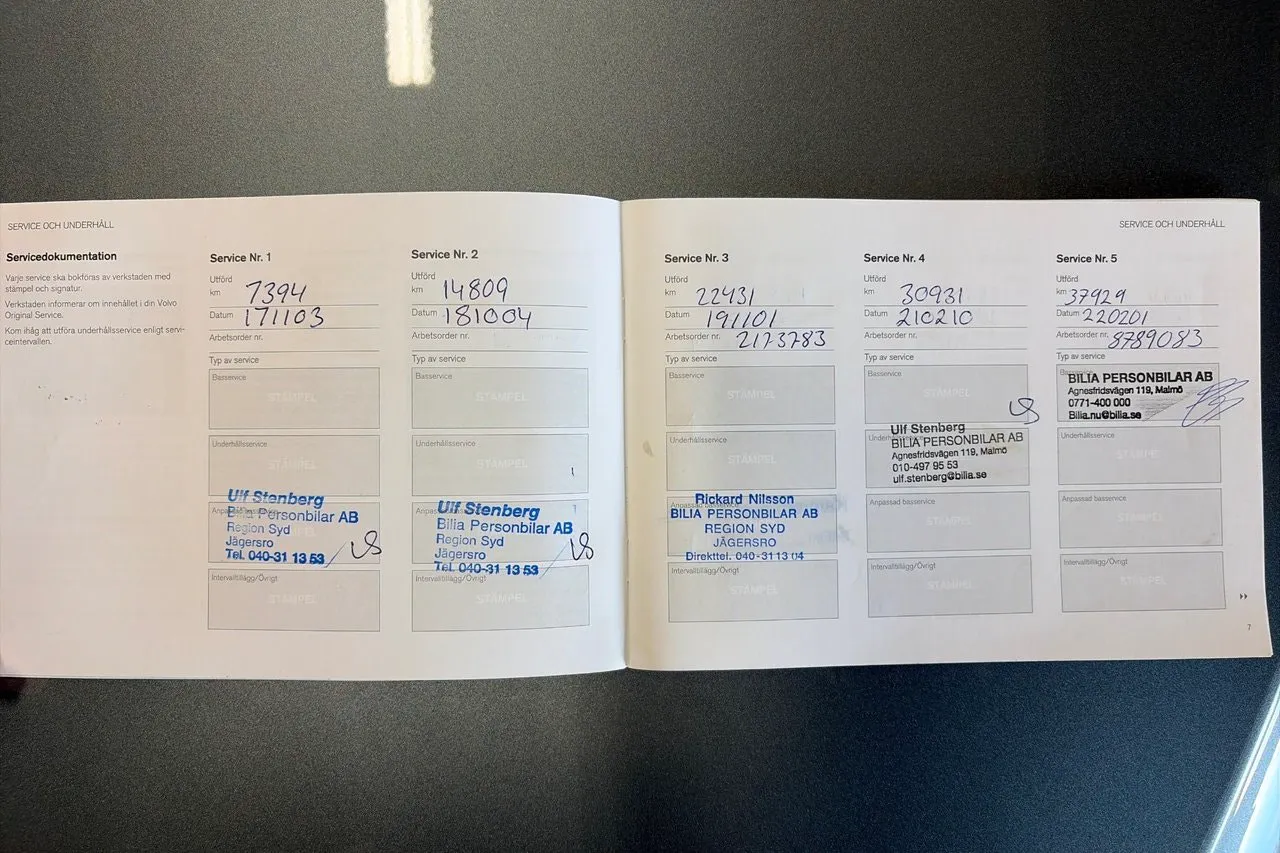 SERVICE OCH UNDERHÅLL
Servicedokumentation
Varje service ska bokföras av verkstaden med
stämpel och signatur.
Verkstaden informerar om innehållet i din Volvo
Original Service.
Kom ihåg att utföra underhållsservice enligt servi-
ceintervallen.
Service Nr. 1
Utförd
km 7394
Datum 171103
Arbetsorder nr.
Typ av service
Basservice
STÄMPEL
Underhållsservice
STÄMPEL
Ulf Stenberg
Bilia Personbilar AB
Region Syd
Jägersro
Tel. 040-31 13 53
Intervalltillägg/Övrigt
STÄMPEL
Service Nr. 2
Utförd
km 14809
Datum 181004
Arbetsorder nr.
Typ av service
Basservice
STÄMPEL
Underhållsservice
STÄMPEL
Ulf Stenberg
Bilia Personbilar AB
Region Syd
Jägersro
Tel. 040-31 13 53
Intervalltillägg/Övrigt
STÄMPEL
SERVICE OCH UNDERHÅLL
Service Nr. 3
Utförd
km 22431
Datum 191101
Arbetsorder nr. 2173783
Typ av service
Basservice
STÄMPEL
Underhållsservice
STÄMPEL
Anpassad basservice
Rickard Nilsson
BILIA PERSONBILAR AB
REGION SYD
JÄGERSRO
Direkttel. 040-31 13 04
Intervalltillägg/Övrigt
STÄMPEL
Service Nr. 4
Utförd
km 30931
Datum 210210
Arbetsorder nr.
Typ av service
Basservice
STÄMPEL
Ulf Stenberg
BILIA PERSONBILAR AB
Agnesfridsvägen 119, Malmö
010-497 95 53
ulf.stenberg@bilia.se
Anpassad basservice
STÄMPEL
Intervalltillägg/Övrigt
STÄMPEL
Service Nr. 5
Utförd
km 37929
Datum 220201
Arbetsorder nr. 8789083
Typ av service
BILIA PERSONBILAR AB
Agnesfridsvägen 119, Malmö
0771-400 000
Bilia.nu@bilia.se
Underhållsservice
STÄMPEL
Anpassad basservice
STÄMPEL
Intervalltillägg/Övrigt
STÄMPEL
7